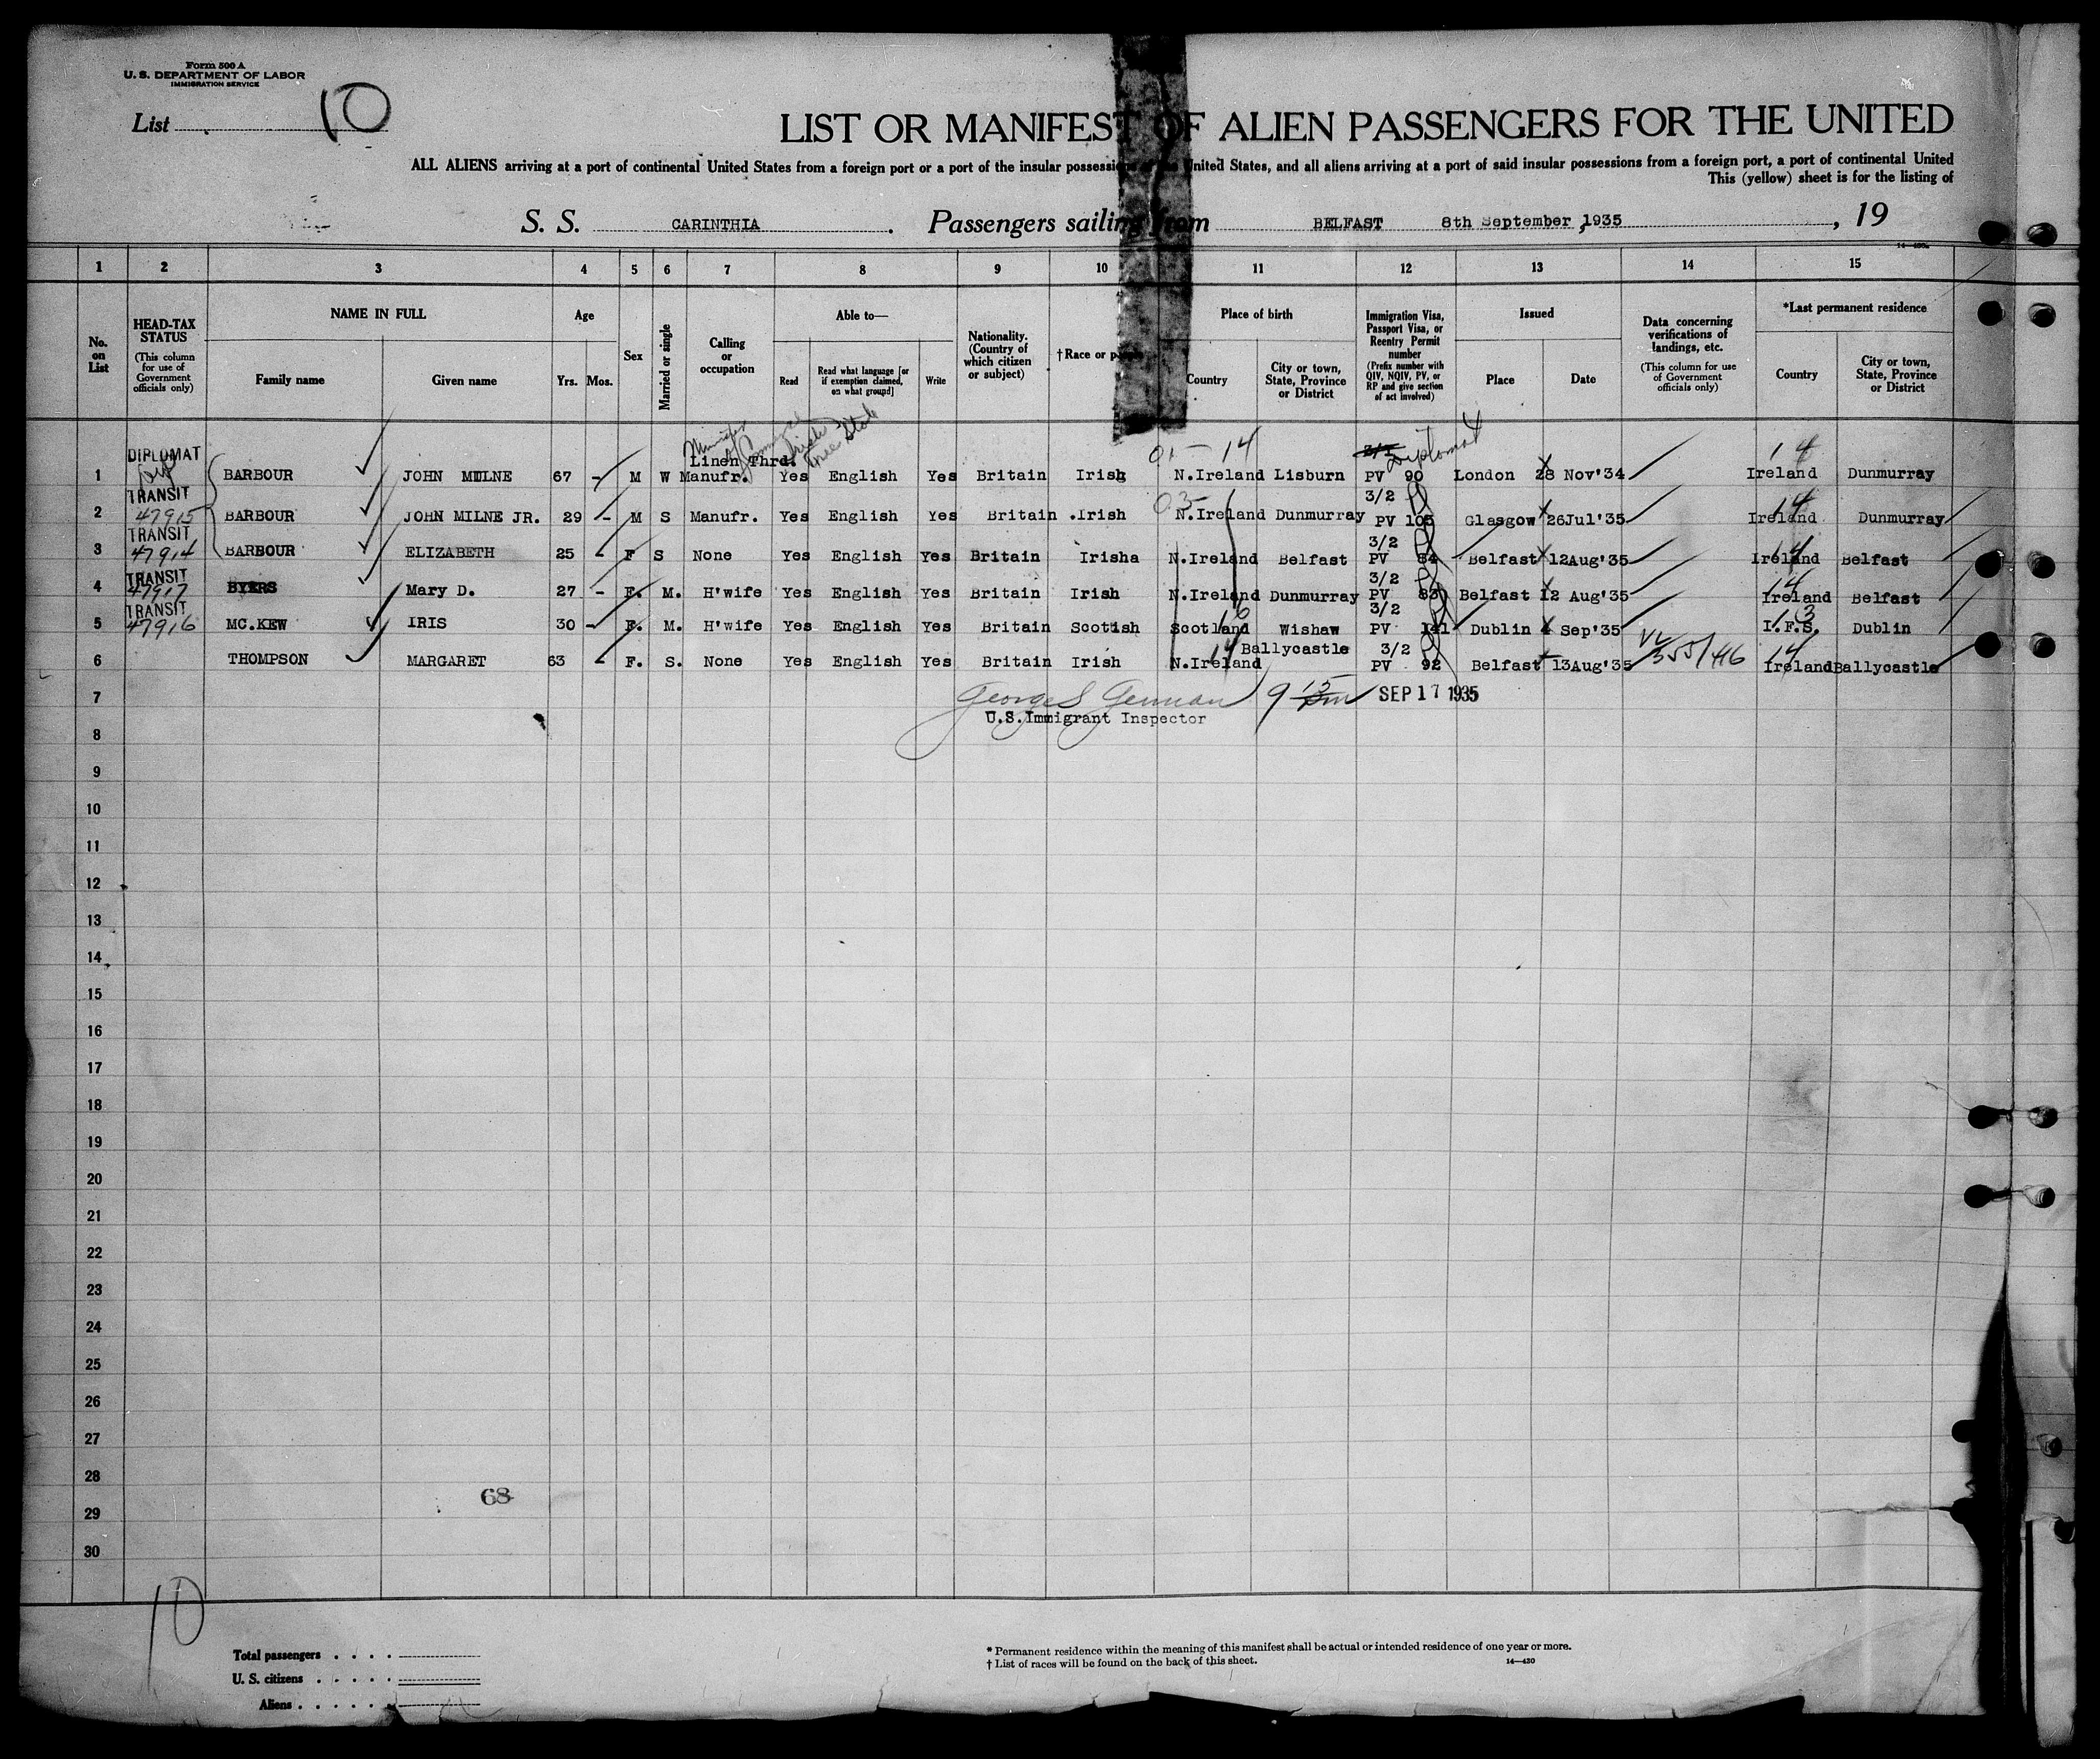 Form 500 A
U. S. DEPARTMENT OF LABOR
IMMIGRATION SERVICE
List 10
LIST OR MANIFEST OF ALIEN PASSENGERS FOR THE UNITED
ALL ALIENS arriving at a port of continental United States from a foreign port or a port of the insular possessions of the United States, and all aliens arriving at a port of said insular possessions from a foreign port, a port of continental United
This (yellow) sheet is for the listing of
S. S. CARINTHIA . Passengers sailing from BELFAST 8th September, 1935 , 19
14—430a
1 2 3 4 5 6 7 8 9 10 11 12 13 14 15
No. on List
HEAD-TAX STATUS (This column for use of Government officials only)
NAME IN FULL
Family name
Given name
Age
Yrs. Mos.
Sex
Married or single
Calling or occupation
Able to—
Read
Read what language [or if exemption claimed, on what ground]
Write
Nationality. (Country of which citizen or subject)
† Race or people
Place of birth
Country
City or town, State, Province or District
Immigration Visa, Passport Visa, or Reentry Permit number (Prefix number with QIV, NQIV, PV, or RP and give section of act involved)
Issued
Place
Date
Data concerning verifications of landings, etc. (This column for use of Government officials only)
*Last permanent residence
Country
City or town, State, Province or District
Minister of Commerce Irish Free State
01 - 14
3/1 Diplomat
14
1 DIPLOMAT Dip BARBOUR JOHN MILNE 67 - M W Linen Thrd. Manufr. Yes English Yes Britain Irish N.Ireland Lisburn PV 90 London 28 Nov'34 Ireland Dunmurray
03
14
2 TRANSIT 47915 BARBOUR JOHN MILNE JR. 29 - M S Manufr. Yes English Yes Britain .Irish N.Ireland Dunmurray 3/2 PV 105 Glasgow 26Jul'35 Ireland Dunmurray
14
3 TRANSIT 47914 BARBOUR ELIZABETH 25 - F S None Yes English Yes Britain Irisha N.Ireland Belfast 3/2 PV 84 Belfast 12Aug'35 Ireland Belfast
14
4 TRANSIT 47917 BYERS Mary D. 27 - F. M. H'wife Yes English Yes Britain Irish N.Ireland Dunmurray 3/2 PV 83 Belfast 12 Aug'35 Ireland Belfast
16
13
5 TRANSIT 47916 MC.KEW IRIS 30 - F. M. H'wife Yes English Yes Britain Scotish Scotland Wishaw 3/2 PV 141 Dublin 4 Sep'35 I.F.S. Dublin
14
VL 355/416
14
6 THOMPSON MARGARET 63 - F. S. None Yes English Yes Britain Irish N.Ireland Ballycastle 3/2 PV 92 Belfast 13Aug'35 Ireland Ballycastle
7 George S German 9 15 pm SEP 17 1935
U.S.Immigrant Inspector
8
9
10
11
12
13
14
15
16
17
18
19
20
21
22
23
24
25
26
27
28
68
29
30
10
Total passengers . . . .
U. S. citizens . . . . .
Aliens . . . . . .
* Permanent residence within the meaning of this manifest shall be actual or intended residence of one year or more.
† List of races will be found on the back of this sheet.
14—430